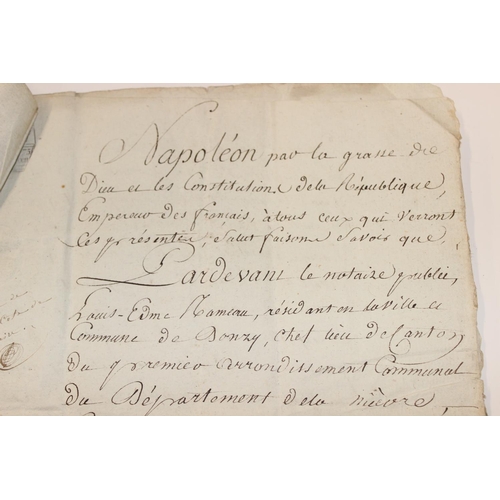 Napoléon par la grasse de
Dieu et les Constitutions de la République,
Empereur des français, à tous ceux qui verront
Ces présentes, salut faisons savoir que,
Pardevant le notaire public,
Louis-Edme Rameau, résidant en la ville et
Commune de Donzy, chef lieu de Canton
du premier arrondissement Communal
du Département de la nièvre,